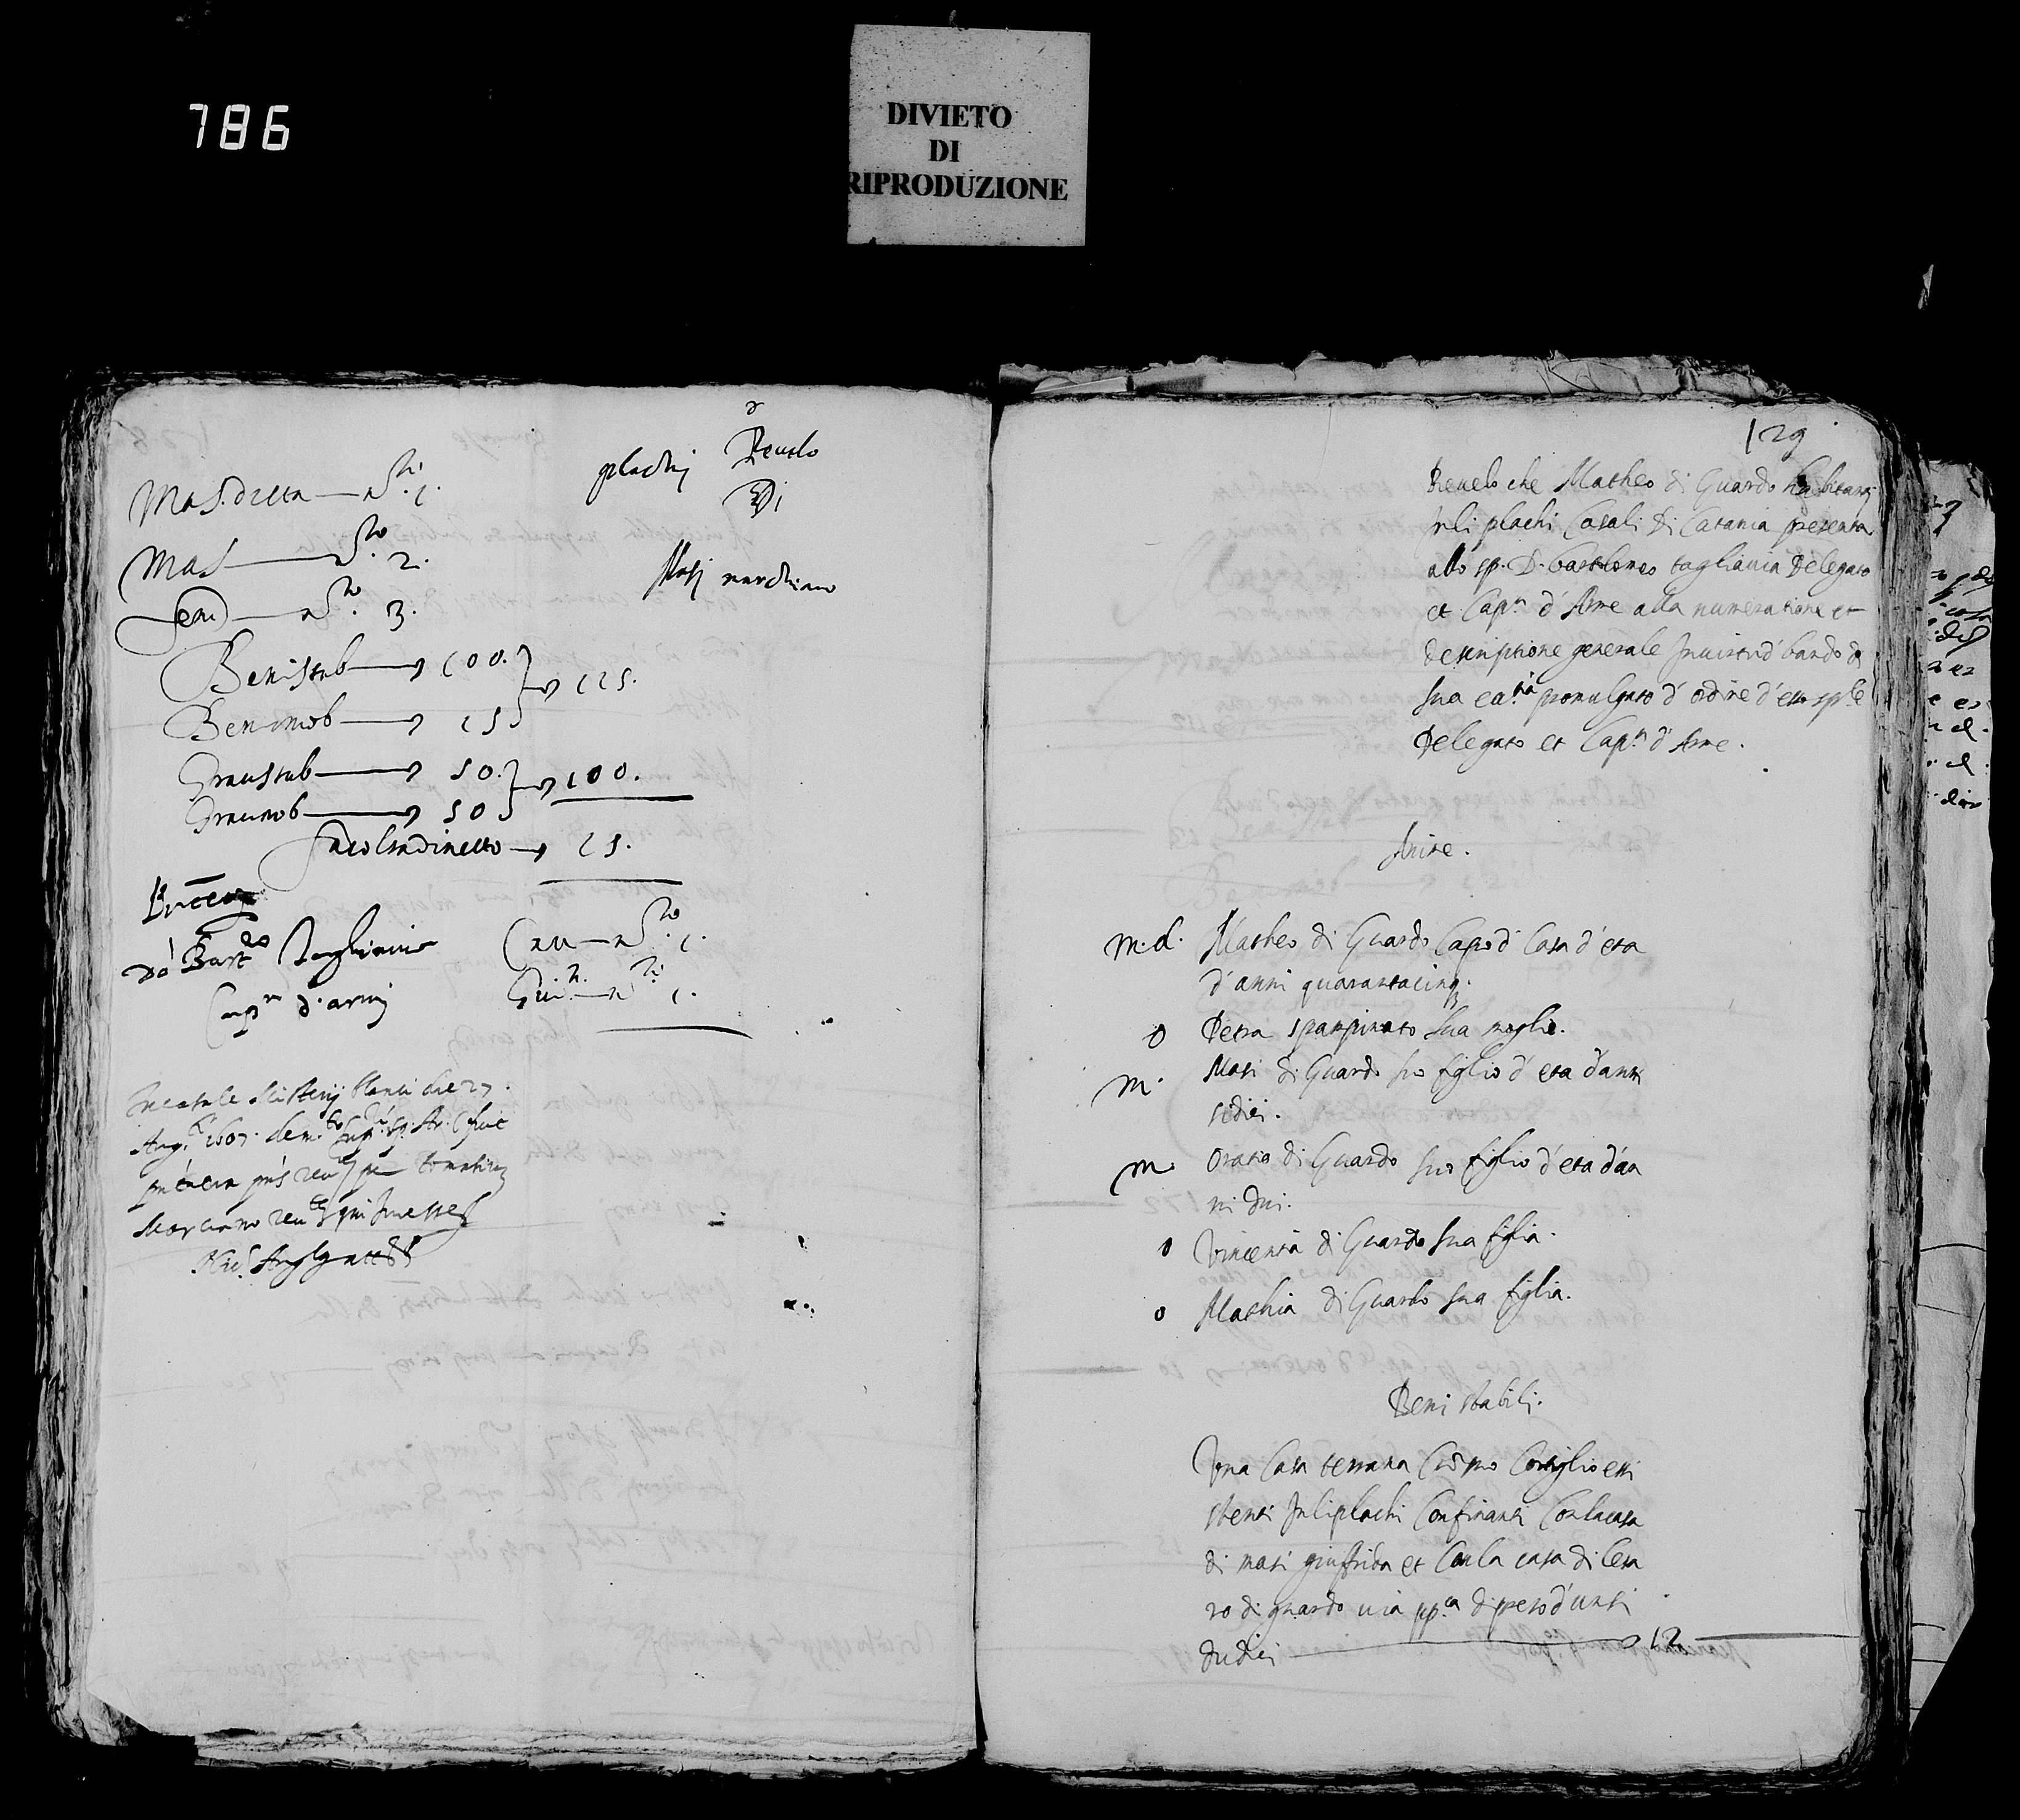 786
DIVIETO
DI
RIPRODUZIONE
plachi Revelo
Di
Masi marchiano
Mas. d'etta — n.° 1.
Mas — n.° 2.
fem — n.° 3.
Beni stab — 100.
125.
Beni mob — 25
Grau stab — 50.
100.
Grau mob — 50
facolta di netto — 25.
D. Bart.eo Tagliavia
Cap.n d'armi
n.° 1.
n.° 1.
129
Revelo che Matheo di Guardo habitanti
Inli plachi Casali di Catania presenta
allo sp. D. bartolomeo tagliavia Delegato
et Cap.n d'Arme alla numeratione et
descriptione generale In virtu d'bando di
sua ecc.tia promulgato d'ordine d'esso sp.le
Delegato et Cap.n d'Arme.
Anime.
m.d. Matheo di Guardo Capo di Casa d'eta
d'anni quarantacinq.
0 Petra spampinato sua moglie.
m. Masi di Guardo suo figlio d'eta d'anni
sidici.
m. Oratio di Guardo suo figlio d'eta d'an
ni dui.
0 Vincentia di Guardo sua figlia.
0 Mathia di Guardo sua figlia.
Beni stabili.
Una Casa terrana Con suo Cortiglio exi
stenti Inli plachi Confinanti Con la casa
di masi giuffrida et Con la casa di Cesa
ro di guardo via pp.ca di prezo d'unti
dudici — 12